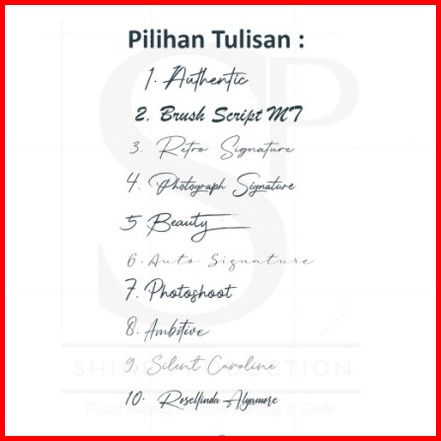 Pilihan Tulisan :
1. Authentic
2. Brush Script MT
3. Retro Signature
4. Photograph Signature
5 Beauty
6. Auto Signature
7. Photoshoot
8. Ambitive
9. Silent Caroline
10. Rosellinda Alyamore